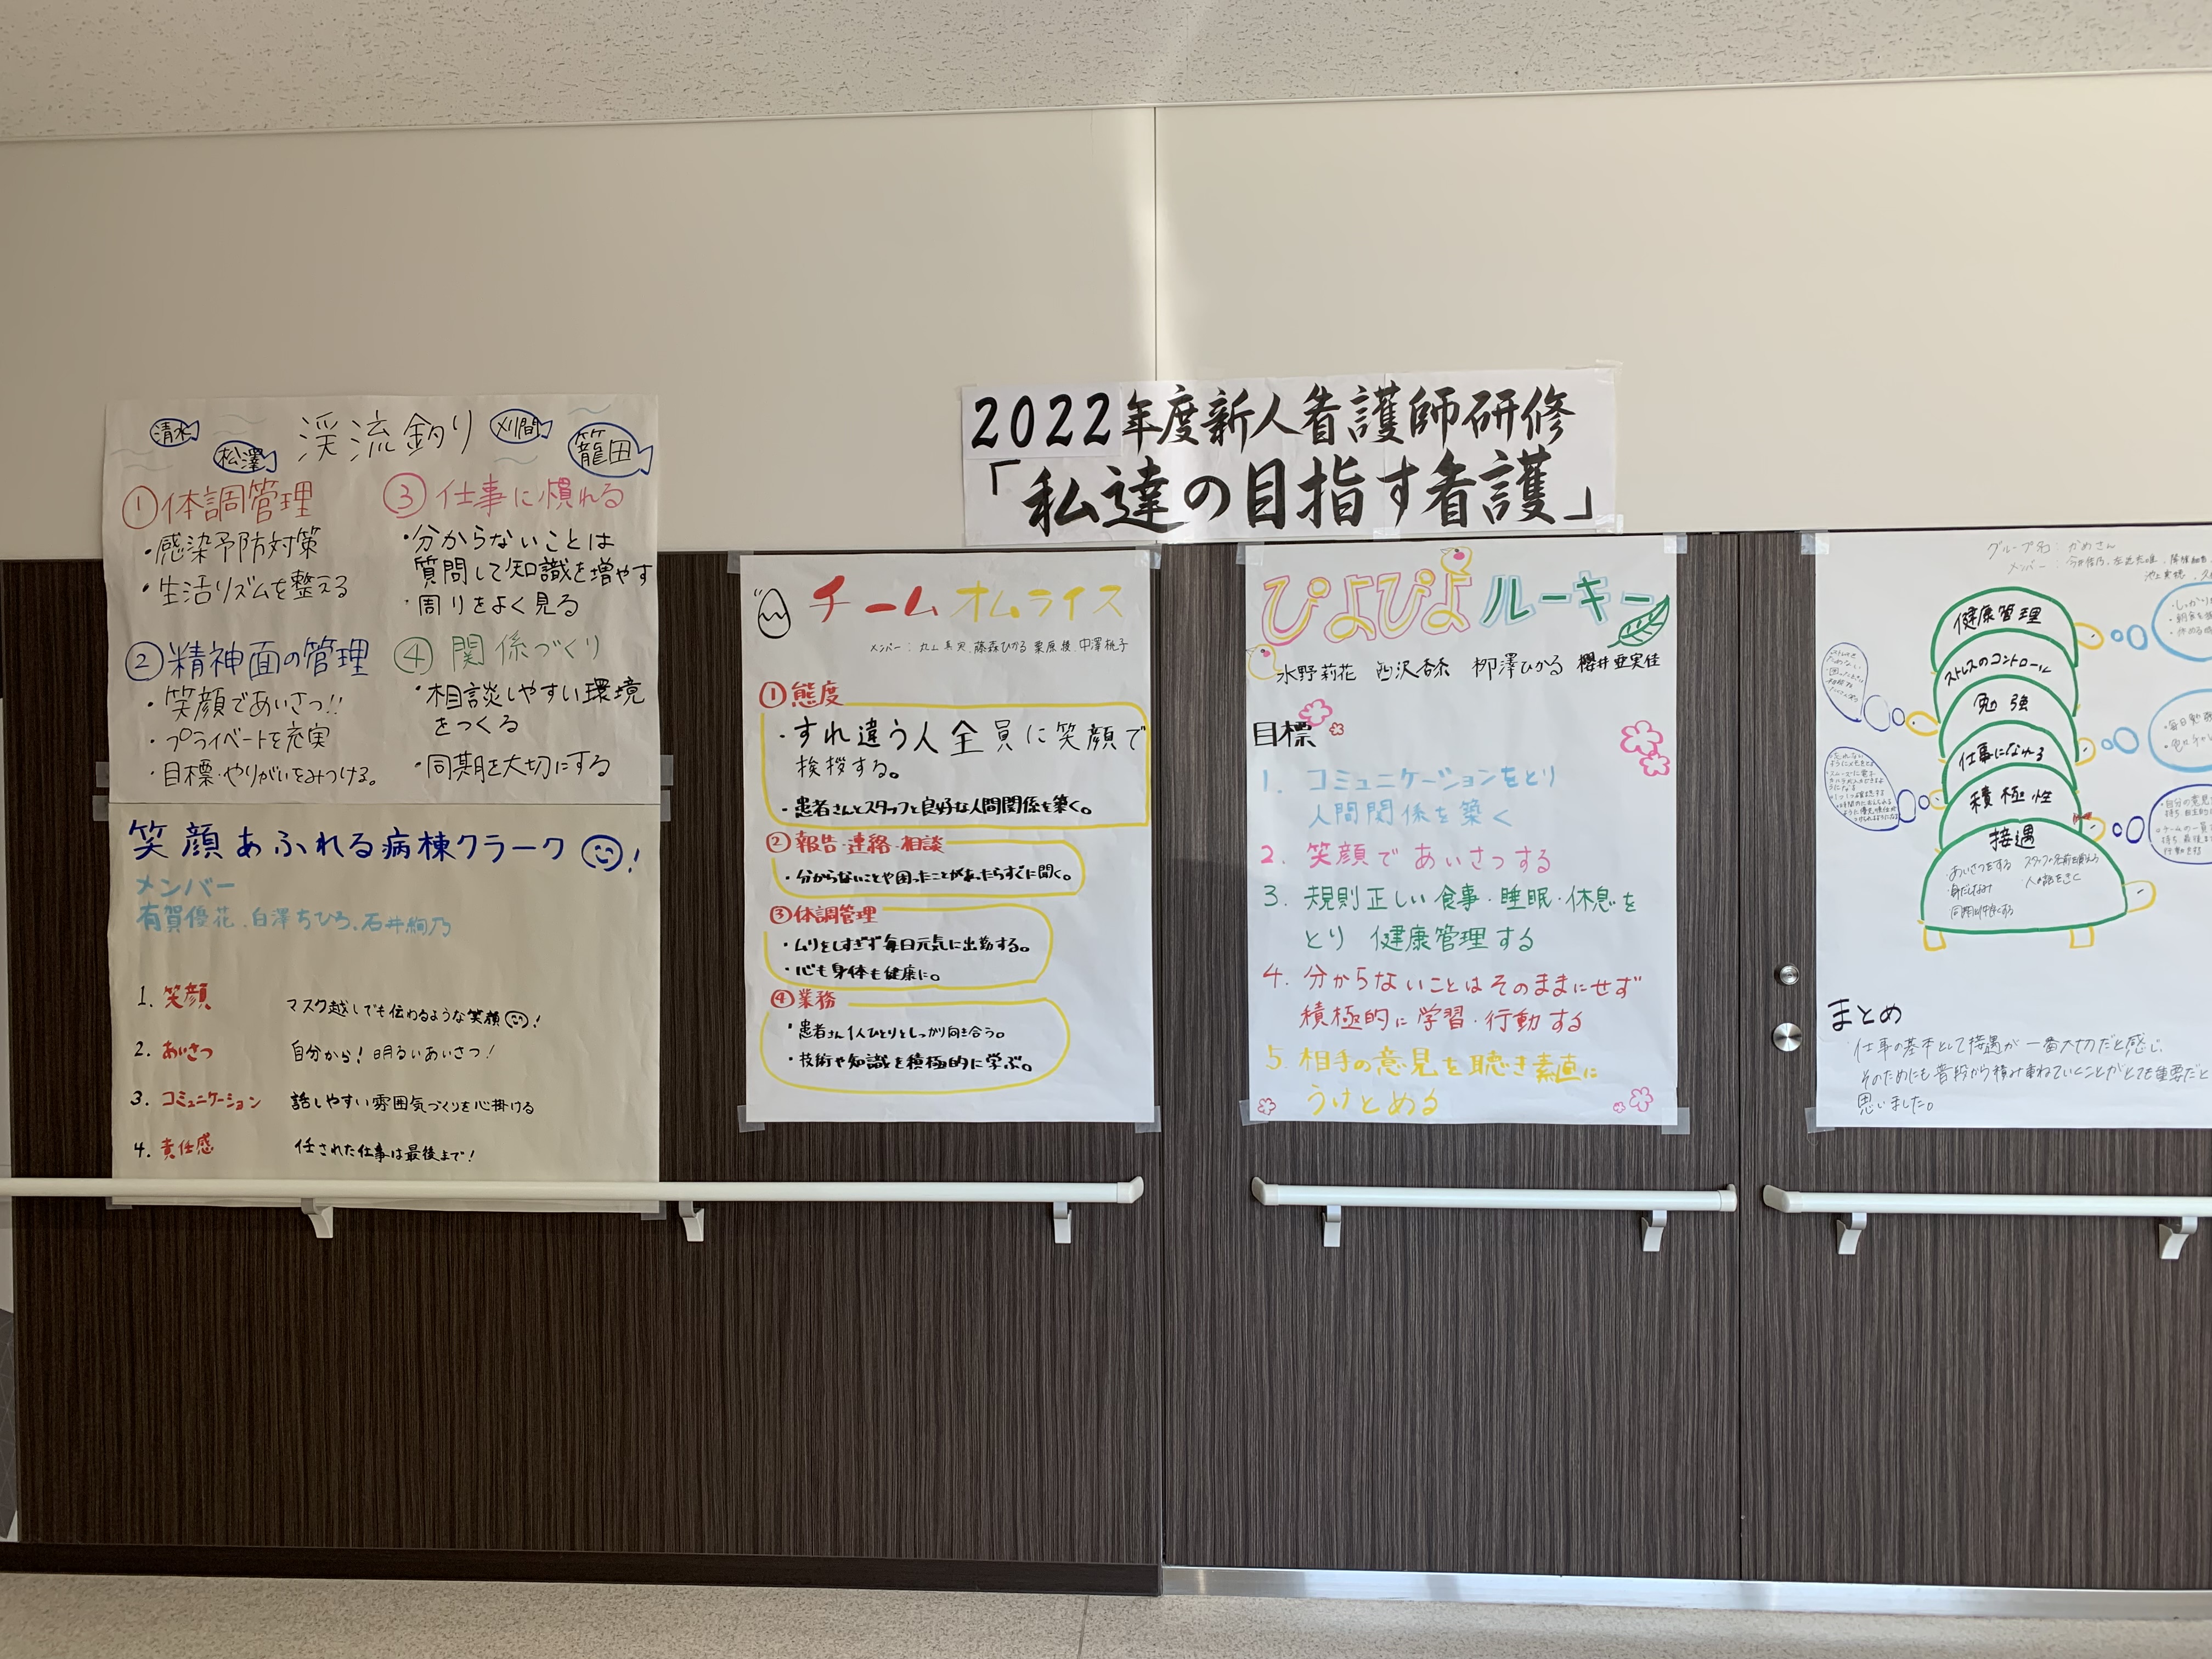 2022年度新人看護師研修
「私達の目指す看護」
渓流釣り
清水
松澤
刈間
籠田
①体調管理
・感染予防対策
・生活リズムを整える
②精神面の管理
・笑顔であいさつ!!
・プライベートを充実
・目標・やりがいをみつける。
③仕事に慣れる
・分からないことは
質問して知識を増やす
・周りをよく見る
④関係づくり
・相談しやすい環境
をつくる
・同期を大切にする
笑顔あふれる病棟クラーク!
メンバー
有賀優花、白澤ちひろ、石井絢乃
1. 笑顔 マスク越しでも伝わるような笑顔!
2. あいさつ 自分から!明るいあいさつ!
3. コミュニケーション 話しやすい雰囲気づくりを心掛ける
4. 責任感 任された仕事は最後まで!
チームオムライス
メンバー: 藤森ひかる 栗原 中澤桃子
①態度
・すれ違う人全員に笑顔で
挨拶する。
・患者さんとスタッフと良好な人間関係を築く。
②報告・連絡・相談
・分からないことや困ったことがあったらすぐに聞く。
③体調管理
・ムリをしすぎず毎日元気に出勤する。
・心も身体も健康に。
④業務
・患者さん1人ひとりとしっかり向き合う。
・技術や知識を積極的に学ぶ。
ぴよぴよルーキー
水野莉花 西沢杏奈 柳澤ひかる 櫻井亜実佳
目標
1. コミュニケーションをとり
人間関係を築く
2. 笑顔であいさつする
3. 規則正しい食事・睡眠・休息を
とり 健康管理する
4. 分からないことはそのままにせず
積極的に学習・行動する
5. 相手の意見を聴き素直に
うけとめる
グループ名: かめさん
メンバー:
健康管理
ストレスのコントロール
勉強
仕事になれる
積極性
接遇
あいさつをする スタッフの名前を覚える
・身だしなみ 人の話をきく
同期と仲良くする
まとめ
仕事の基本として接遇が一番大切だと感じ、
そのためにも普段から積み重ねていくことがとても重要だと
思いました。